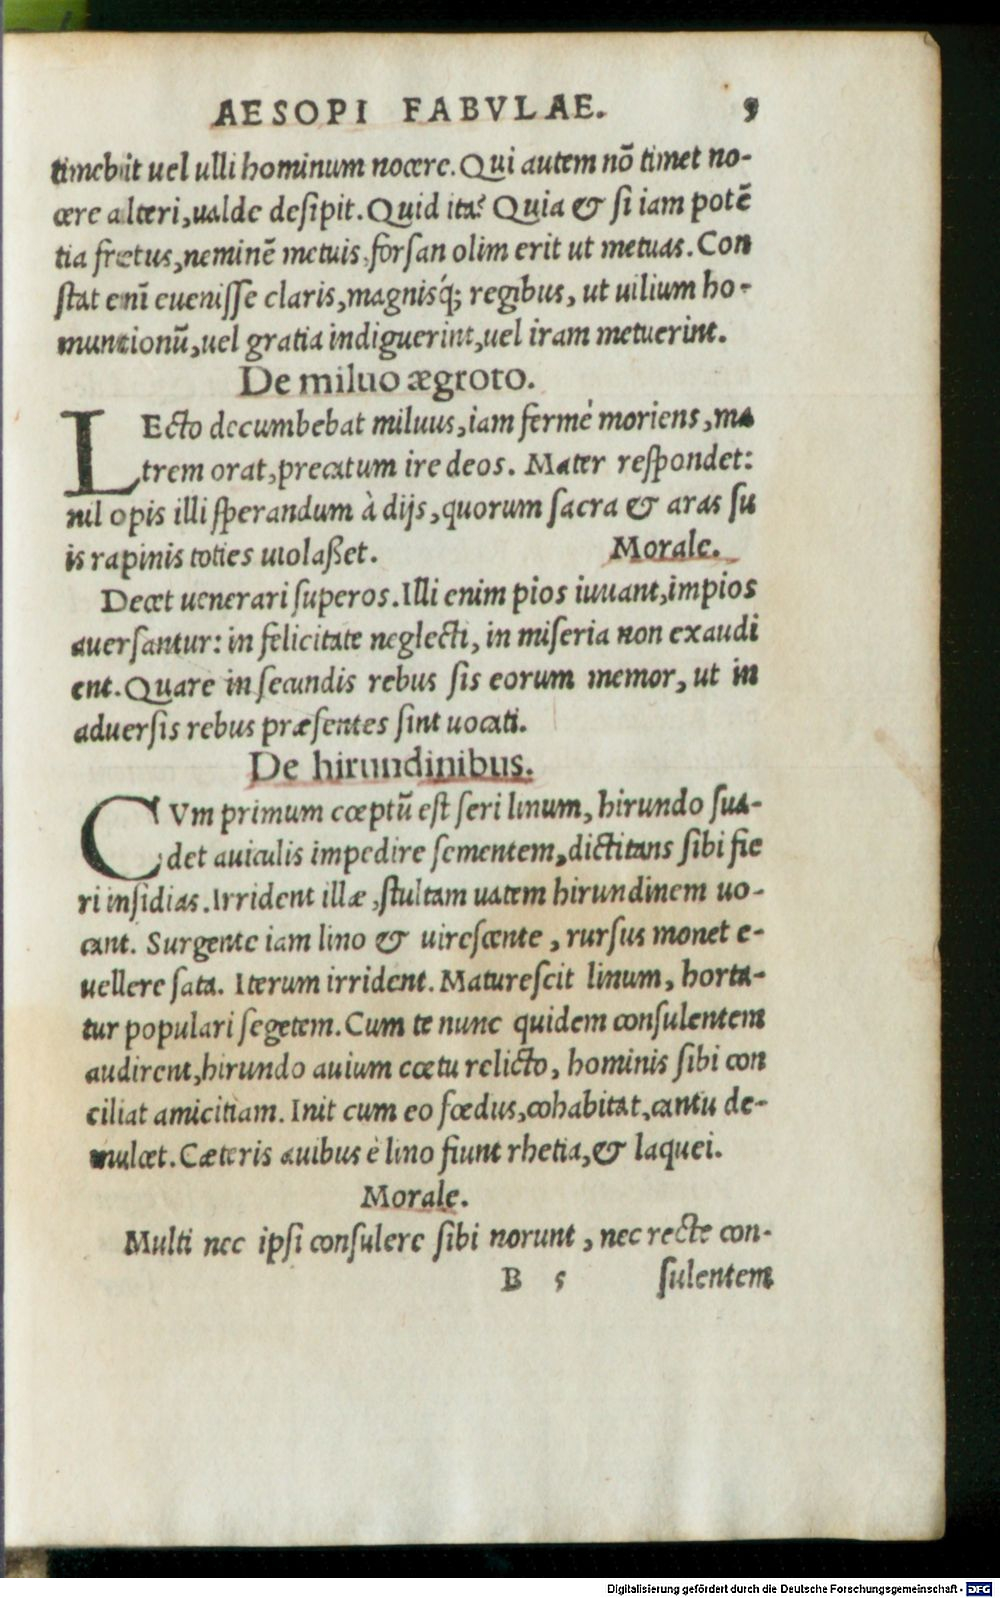 AESOPI FABVLAE. 9
timebit uel ulli hominum nocere. Qui autem nõ timet no-
cere alteri, ualde desipit. Quid ita? Quia & si iam potẽ
tia fretus, neminẽ metuis, forsan olim erit ut metuas. Con
stat enĩ euenisse claris, magnisq́; regibus, ut uilium ho-
muntionũ, uel gratia indiguerint, uel iram metuerint.
De miluo ægroto.
LEcto decumbebat miluus, iam fermé moriens, ma
trem orat, precatum ire deos. Mater respondet:
nil opis illi sperandum à dijs, quorum sacra & aras su
is rapinis toties uiolaßet. Morale.
Decet uenerari superos. Illi enim pios iuuant, impios
auersantur: in felicitate neglecti, in miseria non exaudi
ent. Quare in secundis rebus sis eorum memor, ut in
aduersis rebus præsentes sint uocati.
De hirundinibus.
CVm primum cœptũ est seri linum, hirundo sua-
det auiculis impedire sementem, dictitans sibi fie
ri insidias. Irrident illæ, stultam uatem hirundinem uo-
cant. Surgente iam lino & uirescente, rursus monet e-
uellere sata. Iterum irrident. Maturescit linum, horta-
tur populari segetem. Cum te nunc quidem consulentem
audirent, hirundo auium cœtu relicto, hominis sibi con
ciliat amicitiam. Init cum eo fœdus, cohabitat, cantu de-
mulcet. Cæteris auibus è lino fiunt rhetia, & laquei.
Morale.
Multi nec ipsi consulere sibi norunt, nec recte con-
B 5 sulentem
Digitalisierung gefördert durch die Deutsche Forschungsgemeinschaft - DFG